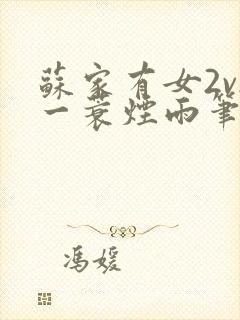 蘇家有女2v
一蓑煙雨筆
馮媛